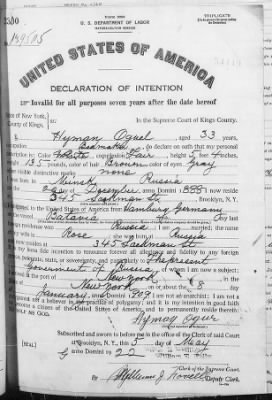 U. S. DEPARTMENT OF LABOR
NATURALIZATION SERVICE
TRIPLICATE
UNITED STATES OF AMERICA
DECLARATION OF INTENTION
Invalid for all purposes seven years after the date hereof
State of New York,
County of Kings,
In the Supreme Court of Kings County.
I, Hyman Oguel, aged 33 years,
occupation, do declare on oath that my personal
description is: Color White, complexion Fair, height 5 feet 4 inches,
weight 135 pounds, color of hair Brown, color of eyes Gray
other visible distinctive marks none
I was born in Minsk Russia
on the day of December, anno Domini 1888; I now reside
at 345 Sackman St., Brooklyn, N.Y.
I emigrated to the United States of America from Hamburg Germany
on the vessel Batavia; my last
foreign residence was Russia; I am married; the name
of my wife is Rose; she was born at Russia
and now resides at 345 Sackman St.
It is my bona fide intention to renounce forever all allegiance and fidelity to any foreign
prince, potentate, state, or sovereignty, and particularly to The present
Government of Russia, of whom I am now a subject;
I arrived at the port of New York, in the
State of New York, on or about the 8 day
of January, anno Domini 1907; I am not an anarchist; I am not a
polygamist nor a believer in the practice of polygamy; and it is my intention in good faith
to become a citizen of the United States of America and to permanently reside therein:
SO HELP ME GOD.
Subscribed and sworn to before me in the office of the Clerk of said Court
[SEAL] at Brooklyn, N. Y., this 5 day of May
anno Domini 1922
Clerk of the Supreme Court.
By, Deputy Clerk.